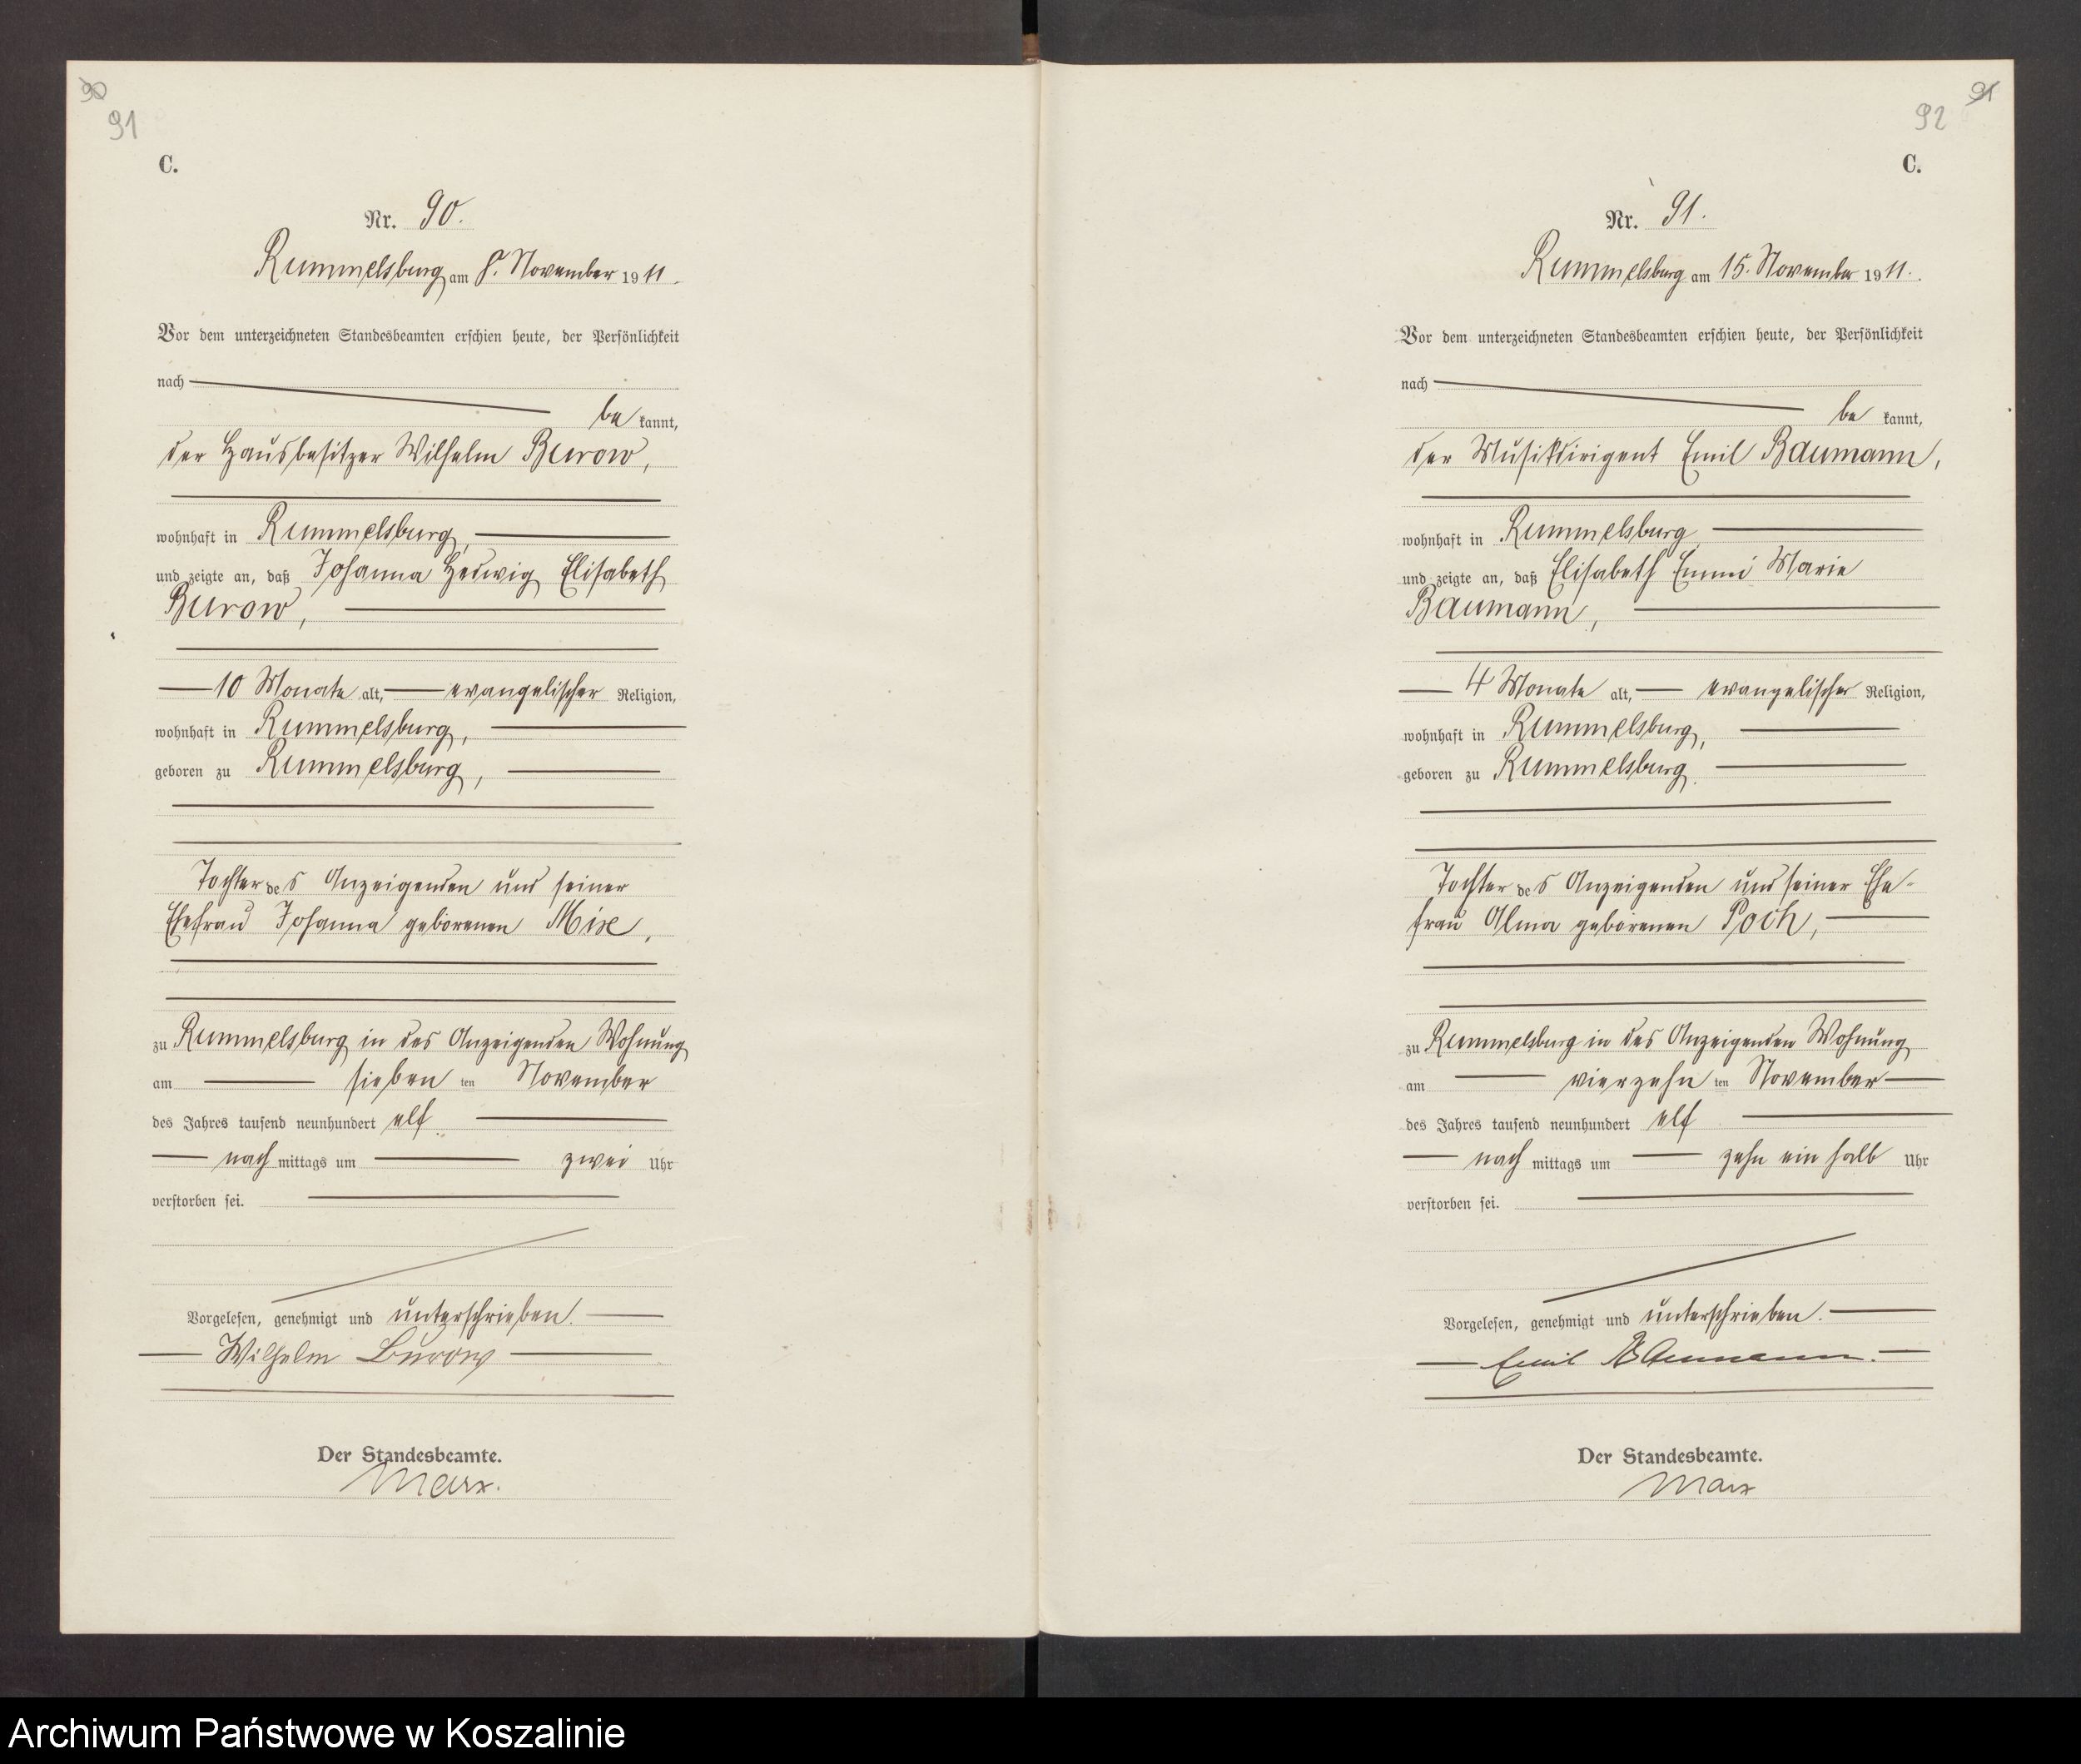 90
91
C.
Nr. 90.
Rummelsburg am 8. November 1911.
Vor dem unterzeichneten Standesbeamten erschien heute, der Persönlichkeit
nach
be kannt,
der Hausbesitzer Wilhelm Burow,
wohnhaft in Rummelsburg,
und zeigte an, daß Johanna Hedwig Elisabeth
Burow,
10 Monate alt, evangelischer Religion,
wohnhaft in Rummelsburg,
geboren zu Rummelsburg,
Tochter des Anzeigenden und seiner
Ehefrau Johanna geborenen Mix,
zu Rummelsburg in des Anzeigenden Wohnung
am sieben ten November
des Jahres tausend neunhundert elf
nach mittags um zwei Uhr
verstorben sei.
Vorgelesen, genehmigt und unterschrieben.
Wilhelm Burow
Der Standesbeamte.
Marx.
91
92
C.
Nr. 91.
Rummelsburg am 15. November 1911.
Vor dem unterzeichneten Standesbeamten erschien heute, der Persönlichkeit
nach
be kannt,
der Musikdirigent Emil Baumann,
wohnhaft in Rummelsburg
und zeigte an, daß Elisabeth Emmi Marie
Baumann,
4 Monate alt, evangelischer Religion,
wohnhaft in Rummelsburg,
geboren zu Rummelsburg
Tochter des Anzeigenden und seiner Ehe-
frau Alma geborenen Poch,
zu Rummelsburg in des Anzeigenden Wohnung
am vierzehn ten November
des Jahres tausend neunhundert elf
nach mittags um zehn ein halb Uhr
verstorben sei.
Vorgelesen, genehmigt und unterschrieben.
Emil Baumann.
Der Standesbeamte.
Marx
Archiwum Państwowe w Koszalinie